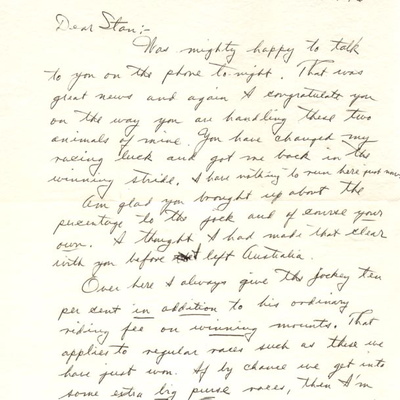 Dear Stan:-
Was mighty happy to talk
to you on the phone to-night. That was
great news and again I congratulate you
on the way you are handling these two
animals of mine. You have changed my
racing luck and got me back in the
winning stride. I have nothing to run here just now
Am glad you brought up about the
percentage to the jock and of course your
own. I thought I had made that clear
with you before I left Australia.
Over here I always give the jockey ten
per cent in addition to his ordinary
riding fee on winning mounts. That
applies to regular races such as these we
have just won. If by chance we get into
some extra big purse races, then I'm